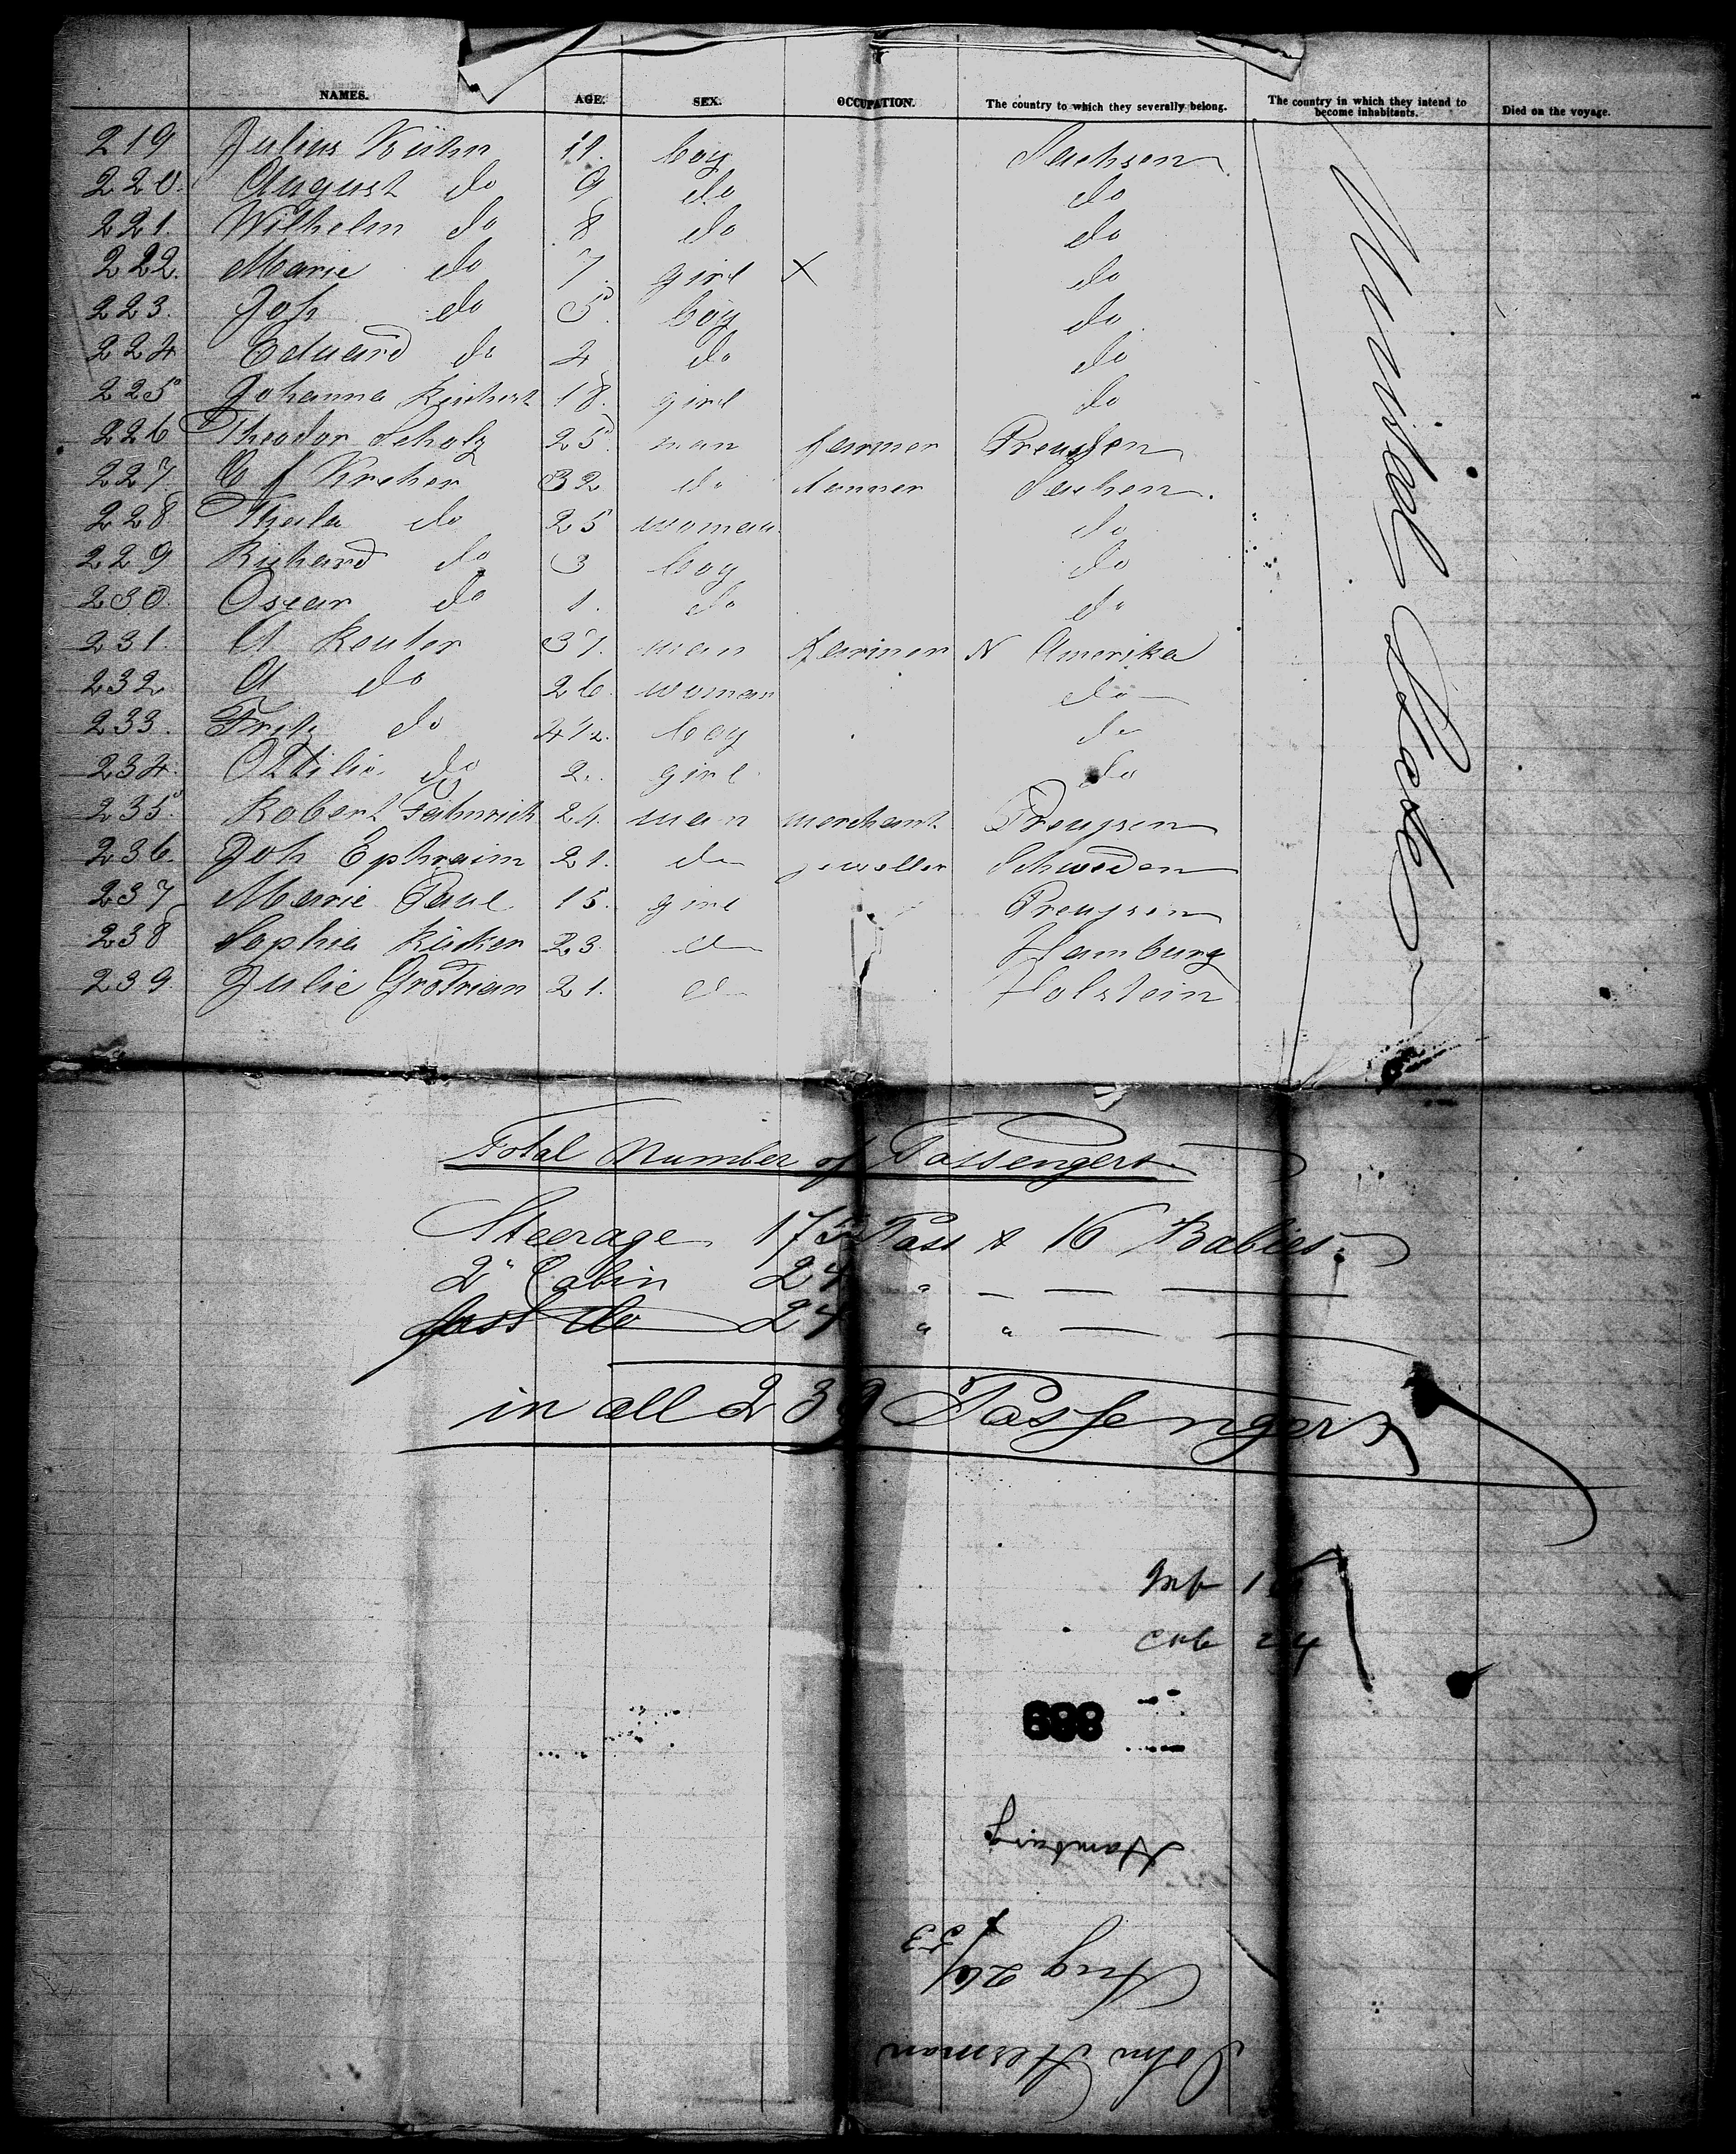 NAMES. AGE. SEX. OCCUPATION. The country to which they severally belong. The country in which they intend to become inhabitants. Died on the voyage.
219 Julius Kühn 11. boy Sachsen
220. August do 9 do do
221. Wilhelm do 8 do do
222. Marie do 7 girl X do
223. Joh do 5 boy do
224 Eduard do 4 do do
225 Johanna 18. girl do
226 Theodor Scholz 25 man farmer Preussen
227. C f Kreher 32 do tanner Sachsen.
228. Thecla do 25 woman do
229 Richard do 3 boy do
230. Oscar do 1. do do
231. A Reuter 37. man farmer N Amerika
232. A do 26 woman do
233. Fritz do 4 1/2. boy do
234. Ottilie do 2. girl do
235. Robert Fähnrich 24. man merchant Preussen
236. Joh Ephraim 21. do jeweller Schweden
237 Marie Paul 15. girl Preussen
238 Sophia Rücker 23. do Hamburg
239. Julie Grotrian 21. do Holstein
United States
Total Number of Passengers
Steerage 175 Pass & 16 Babies.
2" Cabin 24 " — — —
first do 24 " " — —
in all 239 Passengers
Inf 16
Cab 24
889
Hamburg
Aug 26/53
John Herman